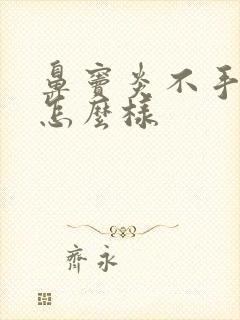 鼻竇炎不手
怎麼樣
齊永